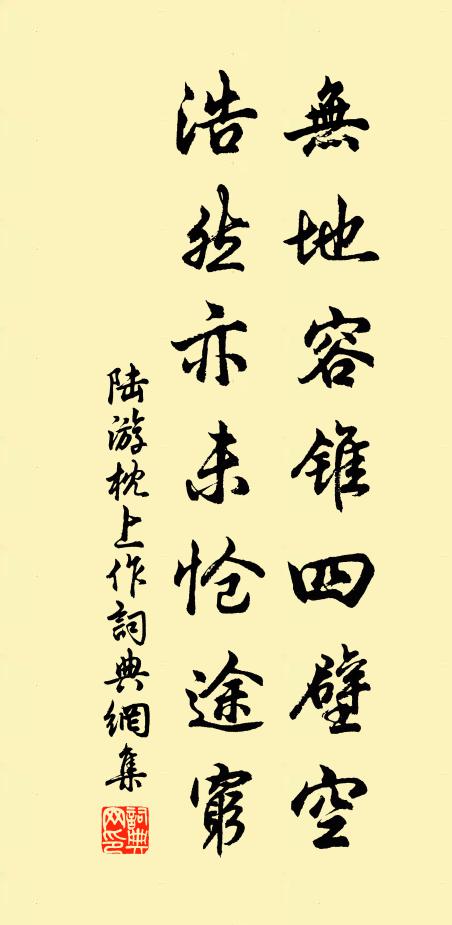 無地容錐四壁空
浩然亦未怆途窮
陆游枕上作詞典網集
詞典網印